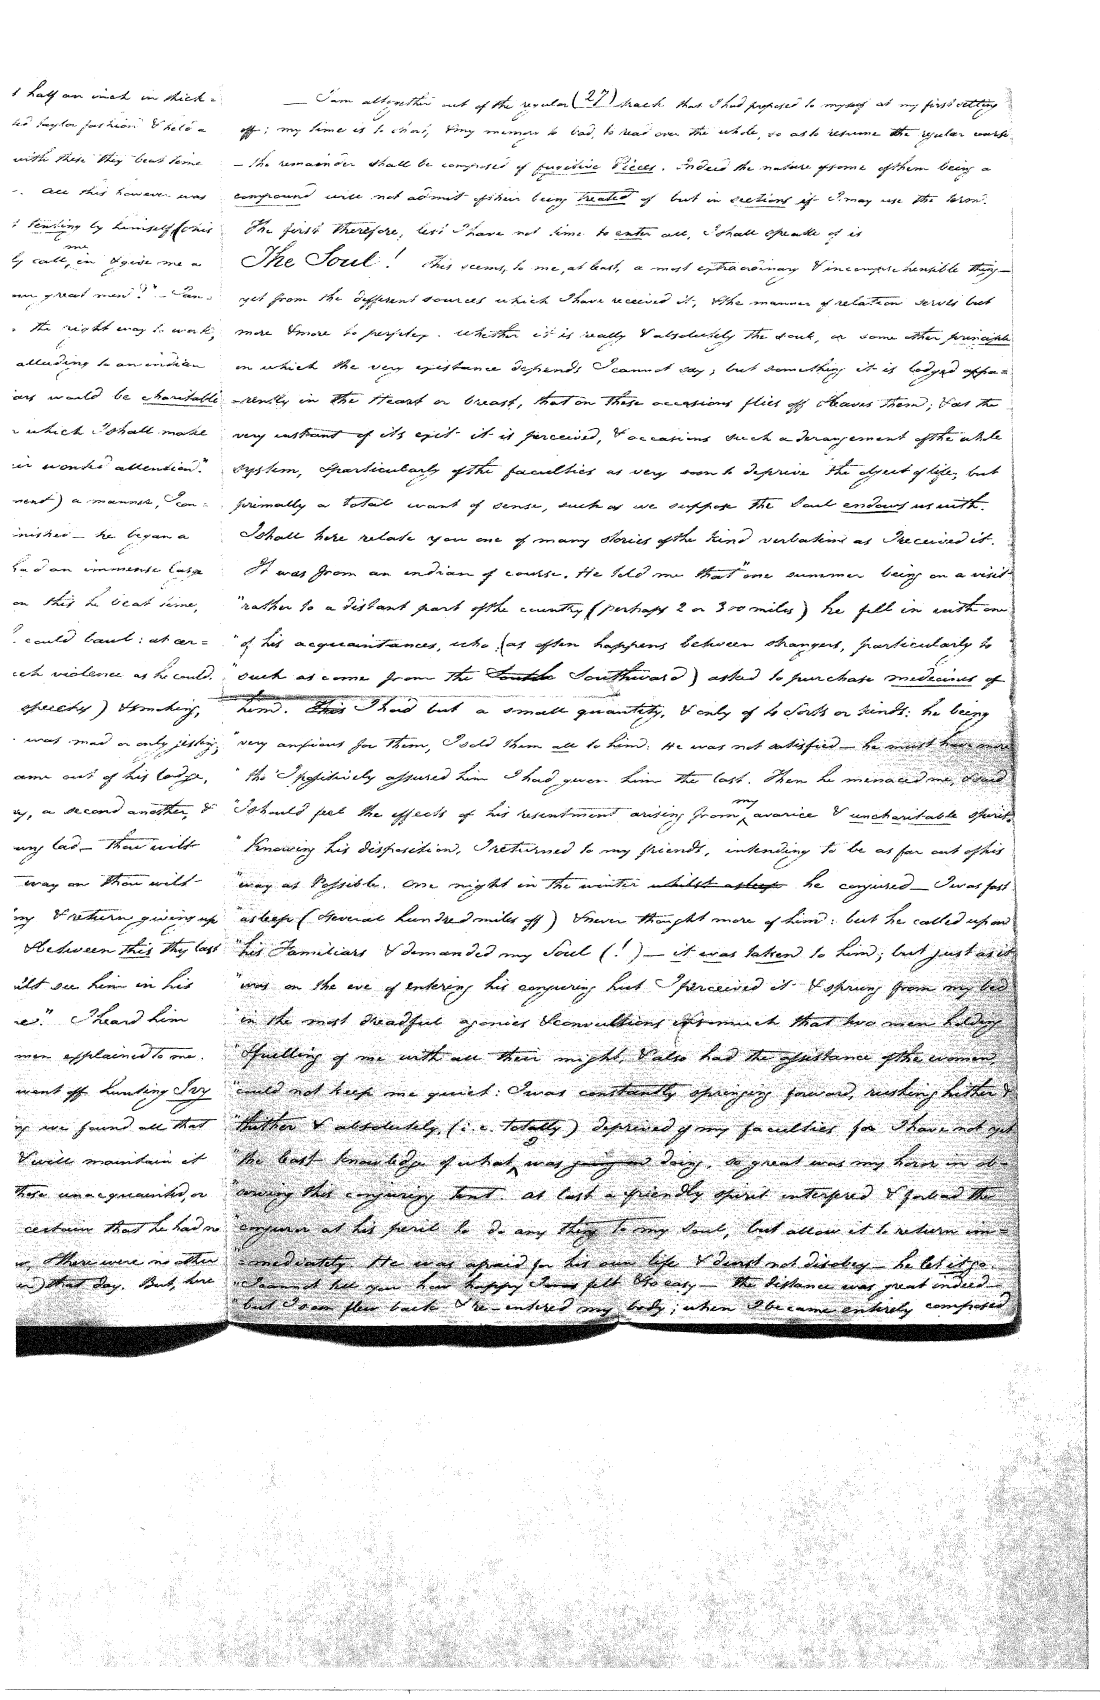 t half an inch in thick-
ted taylor fashion & held a
with these they beat time
. All this however was
t tending by himself (on his
by call me in & give me a
our great men?" — I an-
the right way to work,
alluding to an indian
ars would be charitable
which I shall make
ir wonted attention."
ment) a manner, I con-
inished — he began a
had an immense large
on this he beat time,
could bawl: at cer=
ch violence as he could.
speechy) & smoking,
was mad or only jesting,
ame out of his lodge,
ay, a second another, &
ung lad — thou wilt
way on thou wilt
ny & return giving up
& between this thy last
ilt see him in his
re". I heard him
men explained to me.
went off hunting Ivy
ng we found all that
& will maintain it
those unacquainted, or
certain that he had no
there were no other
in) that day. But, here
(27)
— I am altogether out of the regular track that I had proposed to myself at my first setting
off; my time is to short, & my memory to bad, to read over the whole, so as to resume the regular work
— the remainder shall be composed of fugitive Pieces. Indeed the nature of some of them being a
compound will not admit of their being treated of but in sections if I may use the term.
The first therefore, lest I have not time to enter all, I shall speak of is
The Soul! this seems, to me, at least, a most extraordinary & incomprehensible thing —
yet from the different sources which I have received it, & the manner of relation serves but
more & more to perplex. Whether it is really & absolutely the soul, or some other principle
on which the very existance depends I cannot say; but something it is lodged appa=
=rently in the Heart or breast, that on these occasions flies off & leaves them; & as the
very instant of its exit it is perceived, & occasions such a derangement of the whole
system, & particularly of the faculties as very soon to deprive the object of life, but
primally a total want of sense, such as we suppose the Soul endows us with.
I shall here relate you one of many stories of the kind verbatim as I received it.
It was from an indian of course. He told me that "one summer being on a visit
"rather to a distant part of the country (perhaps 2 or 300 miles) he fell in with one
"of his acquaintances, who, (as often happens between strangers, particularly to
"such as come from the Southward) asked to purchase medicines of
him. I had but a small quantity, & only of to Sorts or kinds: he being
"very anxious for them, I sold them all to him: He was not satisfied — he must have more
"tho' I positively assured him I had given him the last. Then he menaced me, & said
"I should feel the effects of his resentment arising from my avarice & uncharitable spirit.
"Knowing his disposition, I returned to my friends, intending to be as far out of his
"way as Possible. One night in the winter whilst asleep he conjured — I was fast
"asleep (several hundred miles off) & never thought more of him: but he called upon
"his Familiars & demanded my Soul (!) — it was taken to him; but just as it
"was on the eve of entering his conjuring hut I perceived it & sprung from my bed
"in the most dreadful agonies & convultions & so much that two men holding
"& fuelling of me with all their might, & also had the assistance of the women,
"could not keep me quiet: I was constantly springing forward, rushing hither &
"thither & absolutely, (i.e. totally) deprived of my faculties for I have not yet
"the least knowledge of what I was doing, so great was my horror in ob-
"serving this conjuring tent. at last a friendly spirit interfered & forbad the
"conjuror at his peril to do any thing to my Soul, but allow it to return im=
"=mediately. He was afraid for his own life & durst not disobey — he let it go.
"I cannot tell you how happy I was felt & so easy — the distance was great indeed —
but I soon flew back & re-entered my body; when I became entirely composed